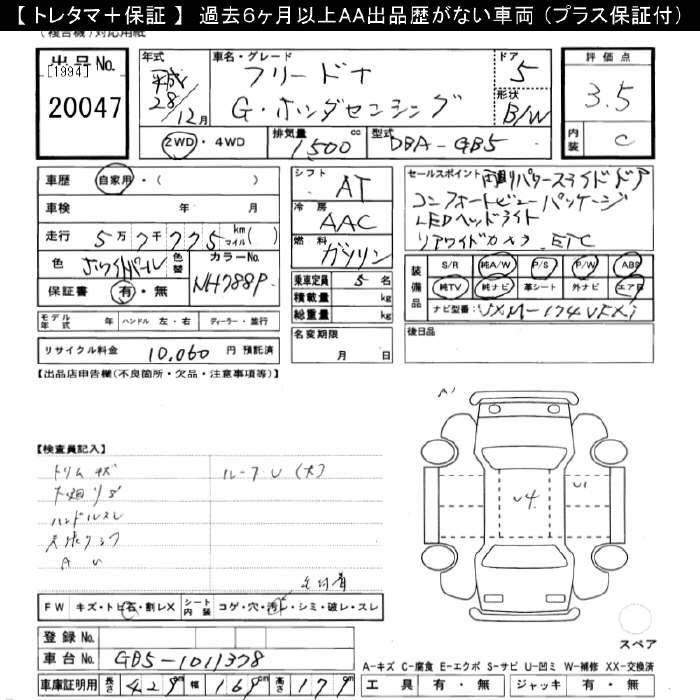 【 トレタマ＋保証 】 過去６ヶ月以上ＡＡ出品歴がない車両（プラス保証付）
(複合機)対応用紙
出品No.
[1994]
20047
年式
平成28年12月
車名・グレード
フリードナ
G・ホンダセンシング
ドア
5
形状
B/W
2WD・4WD
排気量 1500 cc
型式 DBA-GB5
評価点
3.5
内装
C
車歴 自家用・( )
車検 年 月
走行 5万7千775 km マイル( )
色 ホワイトパール 色替 カラーNo. NH788P
保証書 有・無
モデル年式 年 ハンドル 左・右 ディーラー・並行
リサイクル料金 10,060 円 預託済
シフト AT
冷房 AAC
燃料 ガソリン
乗車定員 5 名
積載量 kg
総重量 kg
名変期限
月 日
セールスポイント 両側パワースライドドア
コンフォートビューパッケージ
LEDヘッドライト
リアワイドカメラ ETC
装備品
S/R 純A/W P/S P/W ABS
純TV 純ナビ 革シート 外ナビ エアB
ナビ型番: VXM-174VFXi
後日品
【出品店申告欄(不良箇所・欠品・注意事項等)】
【検査員記入】
トリム キズ
ルーフ U (大)
ハンドルスレ
A U
A1
U4
U1
FW キズ・トビ石・割レX シート内装 コゲ・穴・汚レ・シミ・破レ・スレ
登録No.
車台No. GB5-1011378
車庫証明用 長さ 429cm 幅 169cm 高さ 177cm
スペア
A-キズ C-腐食 E-エクボ S-サビ U-凹ミ W-補修 XX-交換済
工具 有・無 ジャッキ 有・無